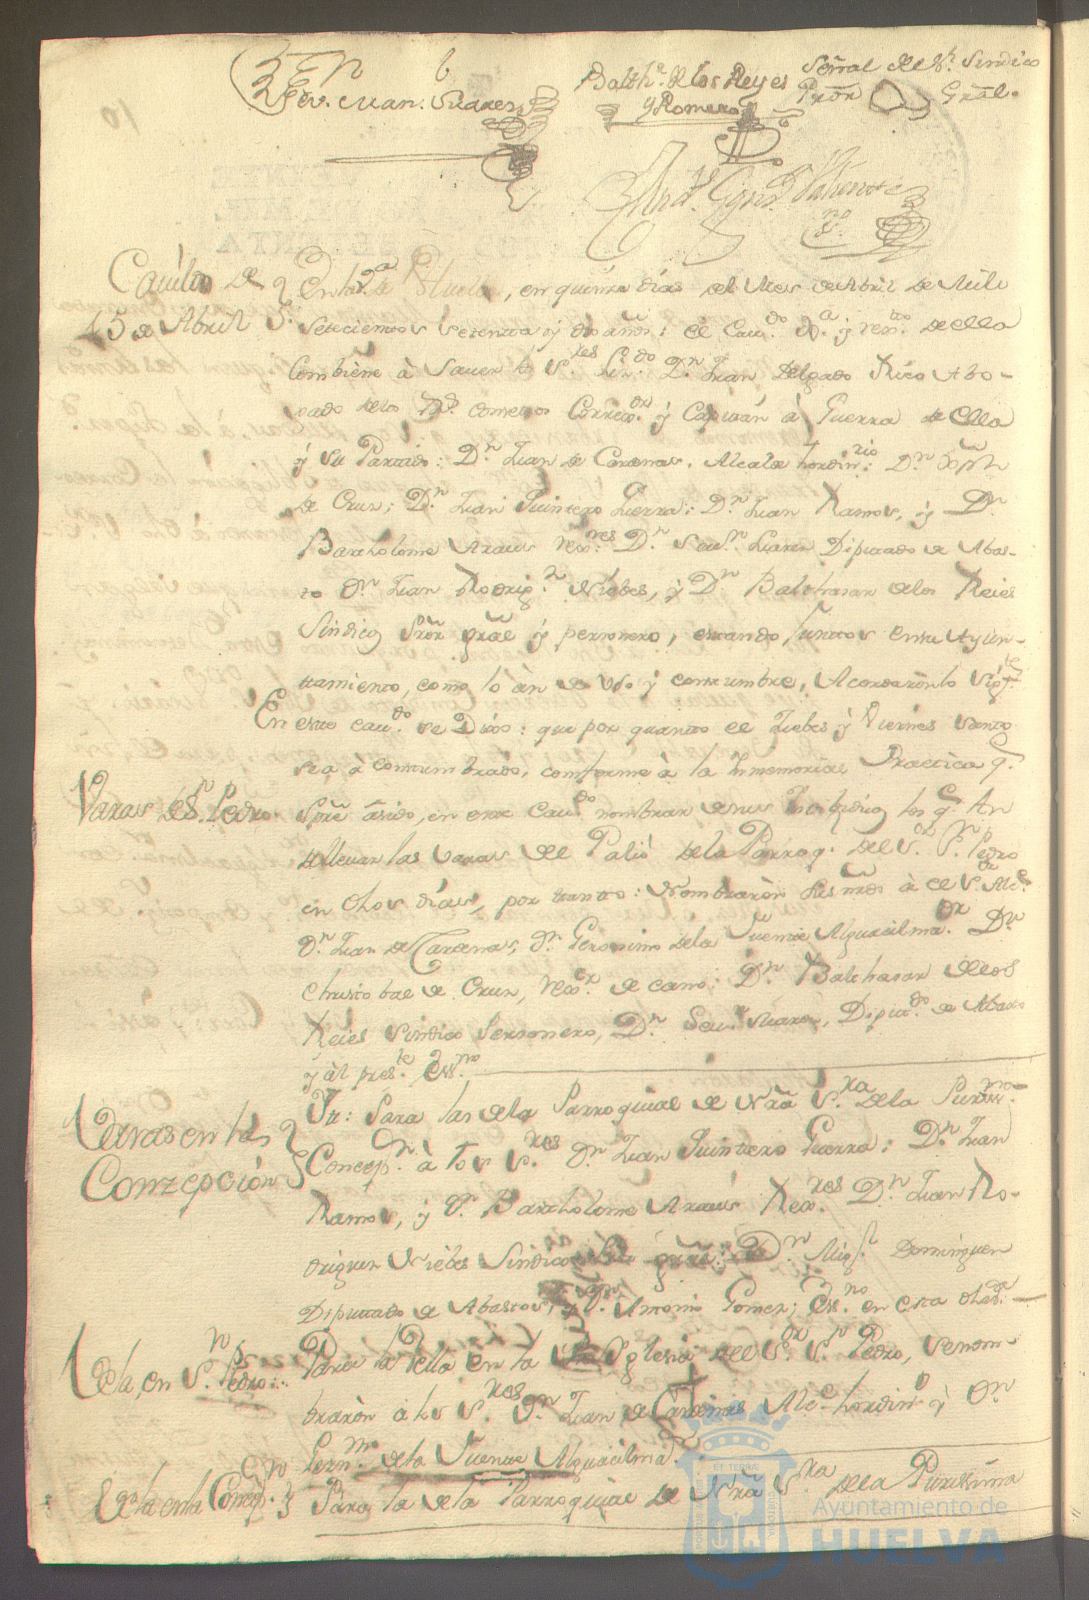 Sev.n Juan. Suares
Balth.r de los Reyes
y Romero
Señal del S.r Sindico
Prõr Grãl.
10
Cavildo de
15 de Abril
En la V.a de Huelva, en quinze días del Mes de Abril de Mil
Setecientos setenta y dos años: el Cav.do Jus.a y Rex.to de ella
Combiene à Saver los S.res Liz.do D.n Juan Delgado Rico Abo-
gado de los R.s Consejos Correx.or y Capitán à Guerra de ella
y Su Partido: D.n Juan de Cardenas, Alcalde hordin.rio: D.n
de Cruz; D.n Juan Quintero Guerra; D.n Juan Ramos, y D.n
Bartholome Araus Rex.res D.n Sev.n Suares Diputado de Abas-
to D.n Juan Rodrig.z Niebes, y D.n Balthasar de los Reies
Sindicos Prõr grãl y personero, estando Juntos en su Ayun-
tamiento, como lo àn de Uso y costumbre, Acordaron lo Sig.te
En este cav.do se Dixo: que por quanto el Juebes y Viernes Santo
se a à costumbrado, comforme à la Inmemorial Practica q.e
Varas de S.n Pedro
Sprẽ à sido, en este Cav.do nombrar de sus Indibiduos los q.e An
de llevar las varas del Palio de la Parroq.l del S.or S.n Pedro
en dhos días, por tanto: Nombraron Sus mrds à el S.or Alc.e
D.n Juan de Cardenas; D.n Geronimo de la Fuente Alguacil ma.or D.n
Christobal de Cruz, Rex.or de camo; D.n Balthasar de los
Reies Sindico Personero, D.n Sev.n Suares, Diput.do de Abasto
y àl pres.te Ess.no
Varas en la
Conzepción
Yt: Para las de la Parroquial de Nrã S.ra de la Puriss.ma
Concep.n à los S.res D.n Juan Quintero Guerra; D.n Juan
Ramos, y D.n Bartholome Araus Rex.res D.n Juan Ro-
driguez Niebes Sindico Prõr grãl: D.n Mig.l Dominguez
Diputado de Abastos, y D.n Antonio Gomez; Ess.no en esta
Vela, en S.n Pedro
Para la Vella en la Iglesia del S.or S.n Pedro, se nom-
braron à los S.res D.n Juan de Cardenas Alc.e hordin.o y D.n
Gern.mo de la Fuente Alguacil ma.or
Vela en la Concep.n
Para la de la Parroquial de Nrã S.ra de la Purissima
Ayuntamiento de
HUELVA